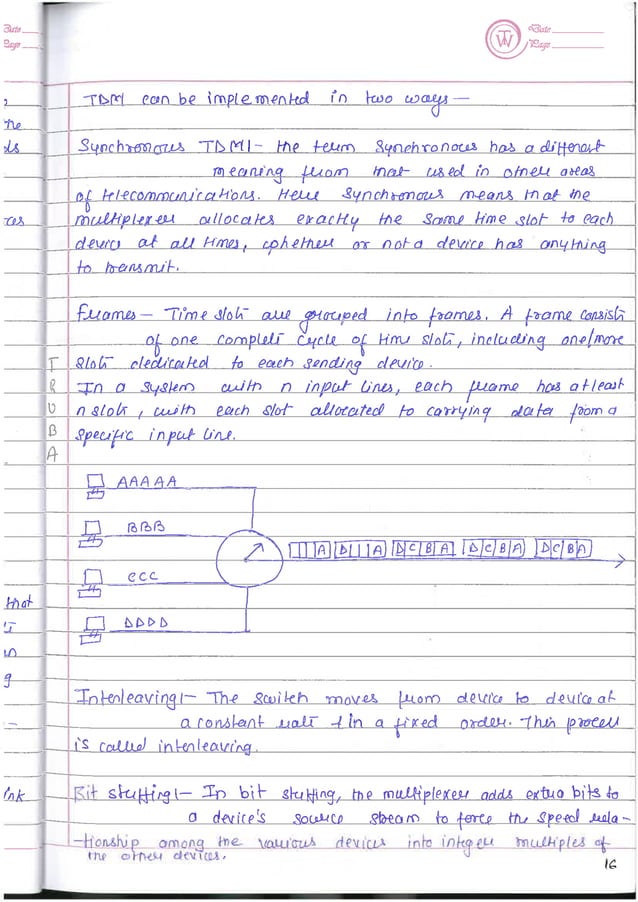 Date
Page
TW
Date
Page
TDM can be implemented in two ways —
he
ds
Synchronous TDM:- the term Synchronous has a different
meaning from that used in other areas
of telecommunications. Here Synchronous means that the
ces
multiplexer allocates exactly the same time slot to each
device at all times, whether or not a device has anything
to transmit.
Frames — Time slots are grouped into frames. A frame consists
of one complete cycle of time slots, including one/more
slots dedicated to each sending device.
In a system with n input lines, each frame has at least
n slots, with each slot allocated to carrying data from a
specific input line.
TRUBA
AAAAA
BBB
A D A D C B A D C B A D C B A
CCC
DDDD
that
Interleaving:- The switch moves from device to device at
a constant rate & in a fixed order. This process
is called interleaving.
ink
Bit stuffing:- In bit stuffing, the multiplexer adds extra bits to
a device's source stream to force the speed rela-
-tionship among the various devices into integer multiples of
the other devices.
16